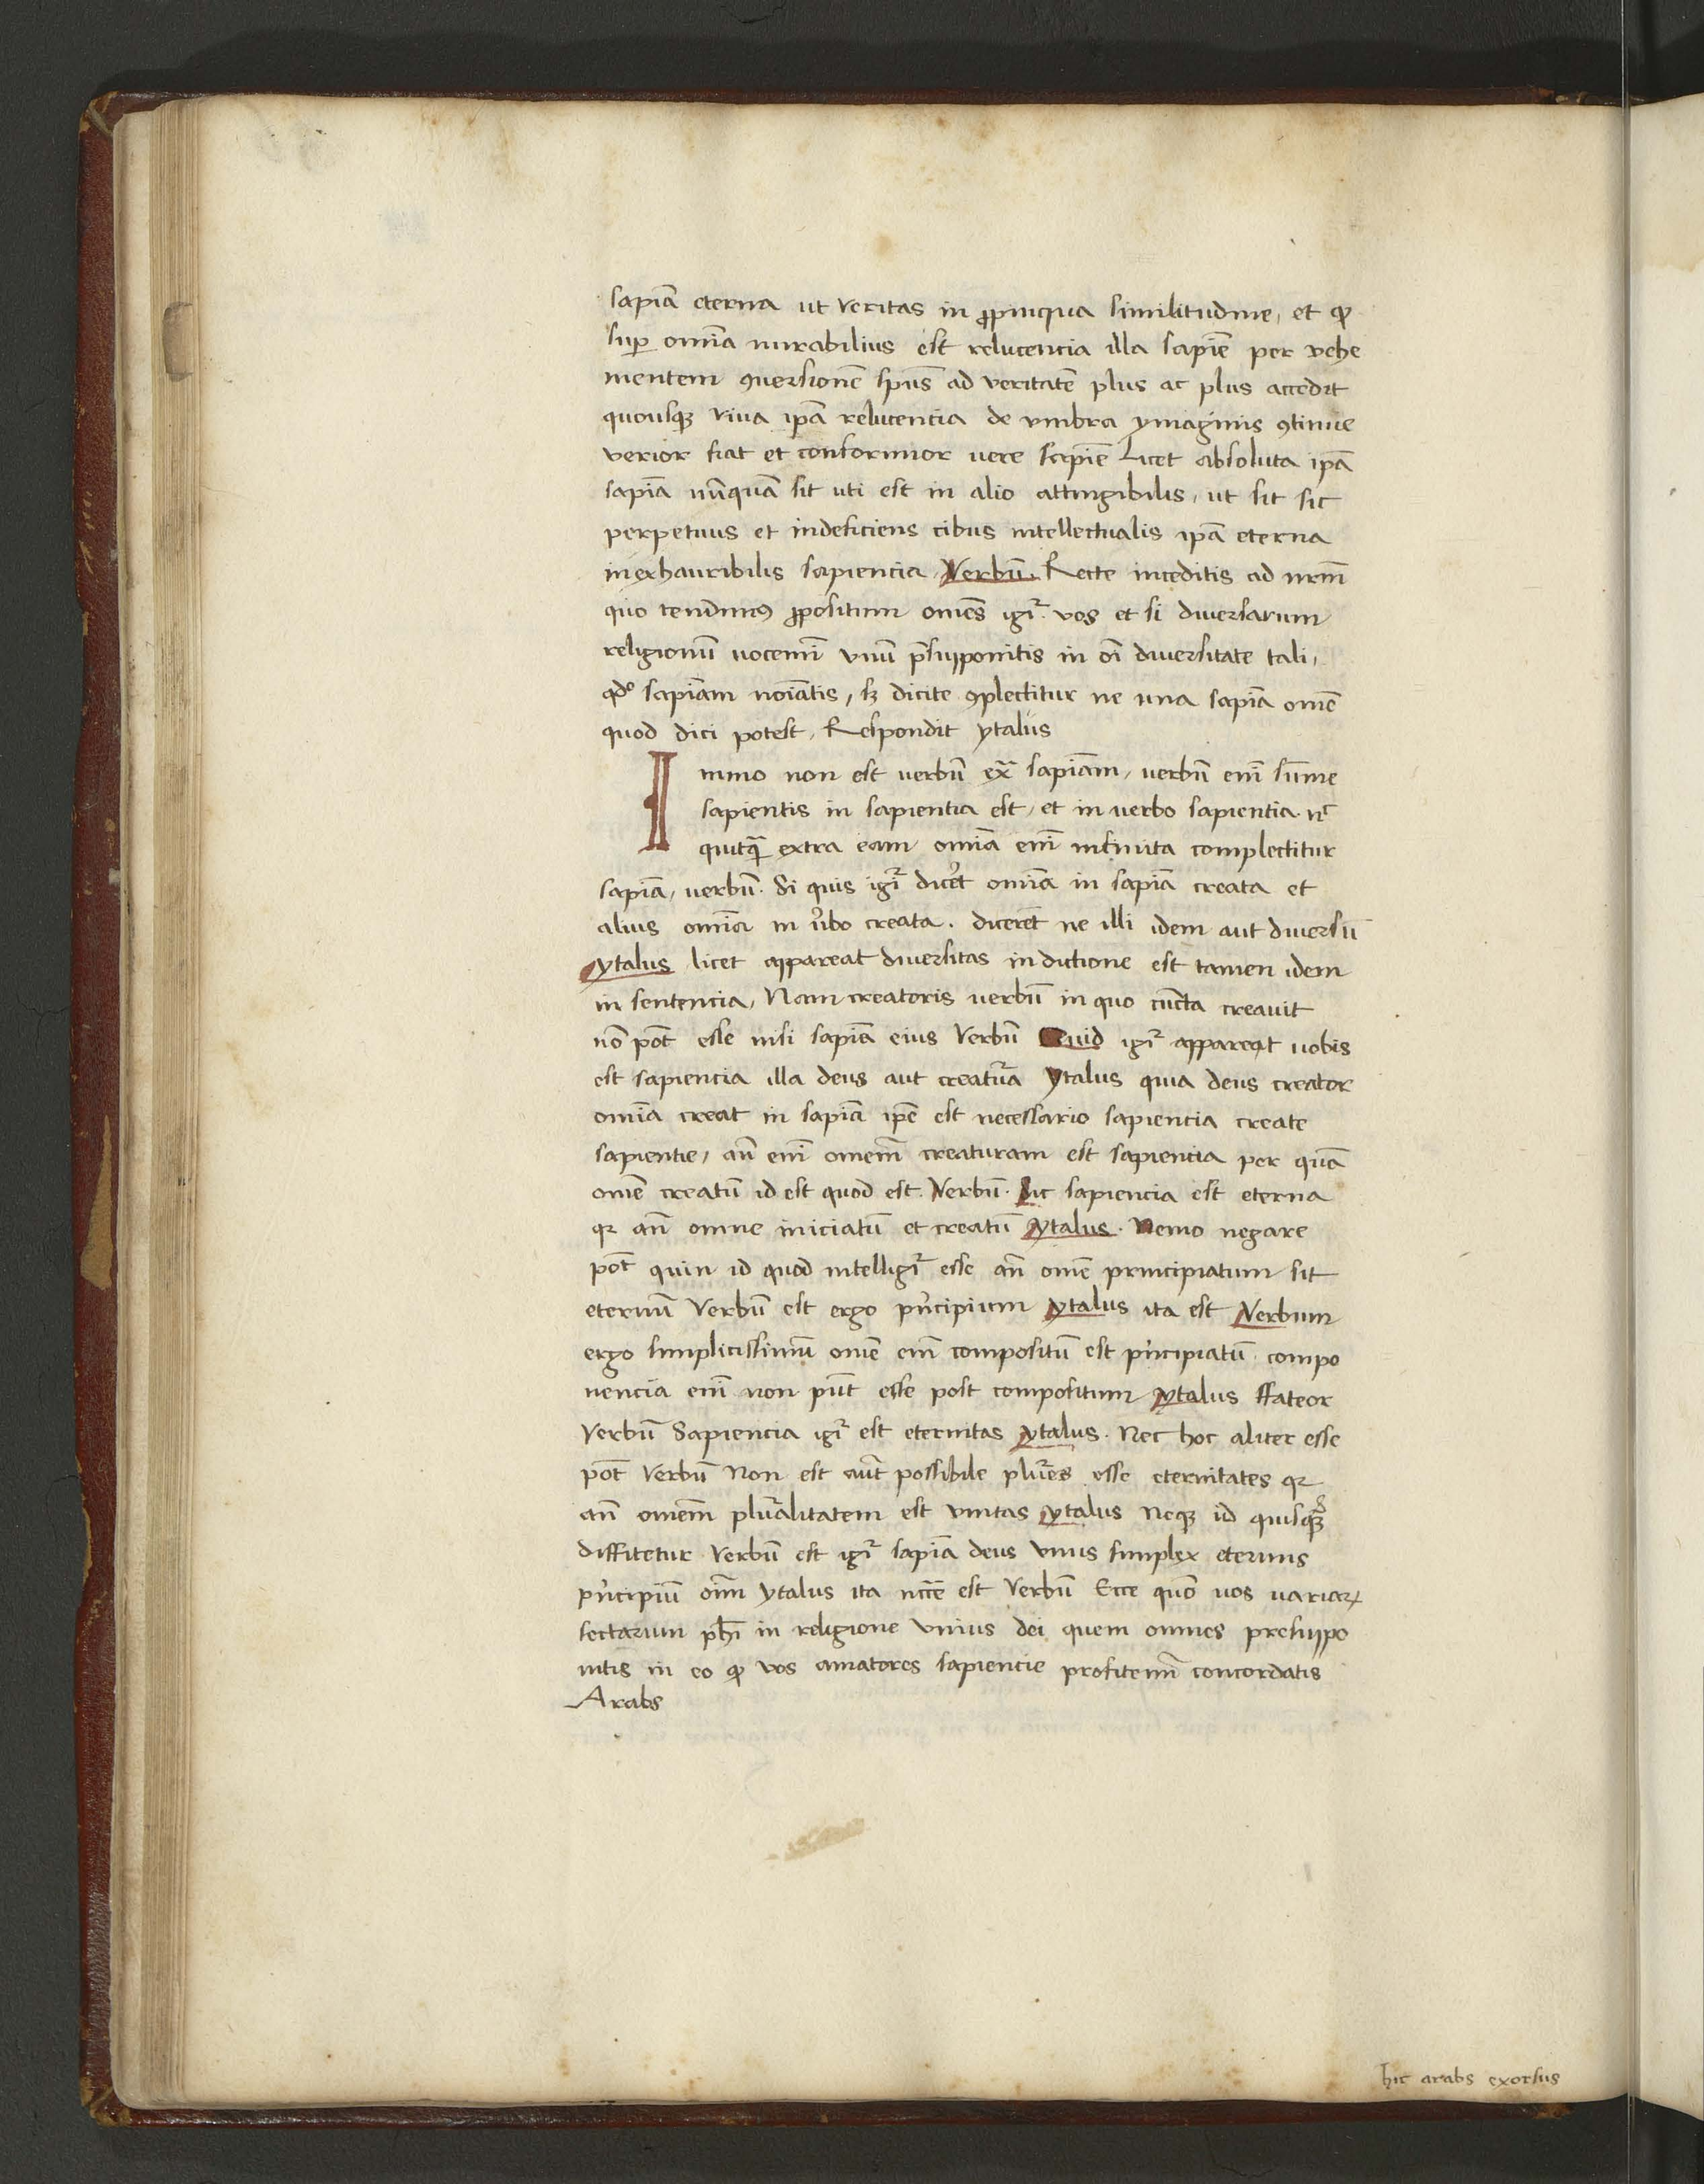 sapīa eterna ut veritas in ꝓpinqua similitudine, et ꝙ
suꝑ omīa mirabilius est relucencia illa sapīe per vehe
mentem ꝯuersionē spūs ad veritatē plus ac plus accedit
quousqꝫ viua ipā relucencia de vmbra ymaginis ꝯtinue
verior fiat et conformior vere sapīe Licet absoluta ipā
sapīa nūquā sit uti est in alio attingibilis, ut sit sic
perpetuus et indeficiens cibus intellectualis ipā eterna
inexhauribilis sapiencia, Verbū. Recte inceditis ad nrm̄
quo tendimus ꝓpositum omēs igr̄ vos et si diuersarum
religionū uocemī vnū p̄supponitis in oī diuersitate tali,
qdᵒ sapīam noīatis, sꝫ dicite ꝯplectitur ne una sapīa omē
quod dici potest, Respondit ytalus
Immo non est verbū exᵃ sapīam, verbū enī sūme
sapientis in sapientia est, et in verbo sapientia. nᶜ
quicq̄ extra eam omīa enī infinita complectitur
sapīa, verbū. Si quis igr̄ dicet omīa in sapīa creata et
alius omīa in v̓bo creata. dicerēt ne illi idem aut diuersū
ytalus licet appareat diuersitas in dictione est tamen idem
in sentencia, Nam creatoris verbū in quo cūcta creauit
nō pōt esse nisi sapīa eius Verbū Quid igr̄ apparet uobis
est sapiencia illa deus aut creatᵃ̄ Ytalus quia deus creator
omīa creat in sapīa ipē est necessario sapiencia create
sapientie, an̄ enī omem̄ creaturam est sapiencia per quā
omē creatū id est quod est. Verbū. Sic sapiencia est eterna
qꝛ an̄ omne iniciatū et creatū ytalus. Nemo negare
pōt quin id quod intelligr̄ esse an̄ omē principiatum sit
eternū Verbū est ergo pn̓cipium ytalus ita est Verbum
ergo simplicissimū omē em̄ compositū est pn̓cipiatū. compo
nencia enī non pn̄t esse post compositum ytalus ffateor
Verbū Sapiencia igr̄ est eternitas ytalus. Nec hoc aliter esse
pōt Verbū Non est aūt possibile plures esse eternitates qꝛ
an̄ omem̄ pluralitatem est vnitas ytalus Neqꝫ id quisqꝫ
diffitetur Verbū est igr̄ sapīa deus vnus simplex eternus
pn̓cipiū oīm ytalus ita nc̄ce est Verbū Ecce quō uos uariaꝝ
sectarum phī in religione vnius dei quem omnes presuppo
nitis in eo ꝙ vos amatores sapiencie profitemī concordatis
Arabs
hic arabs exorsus